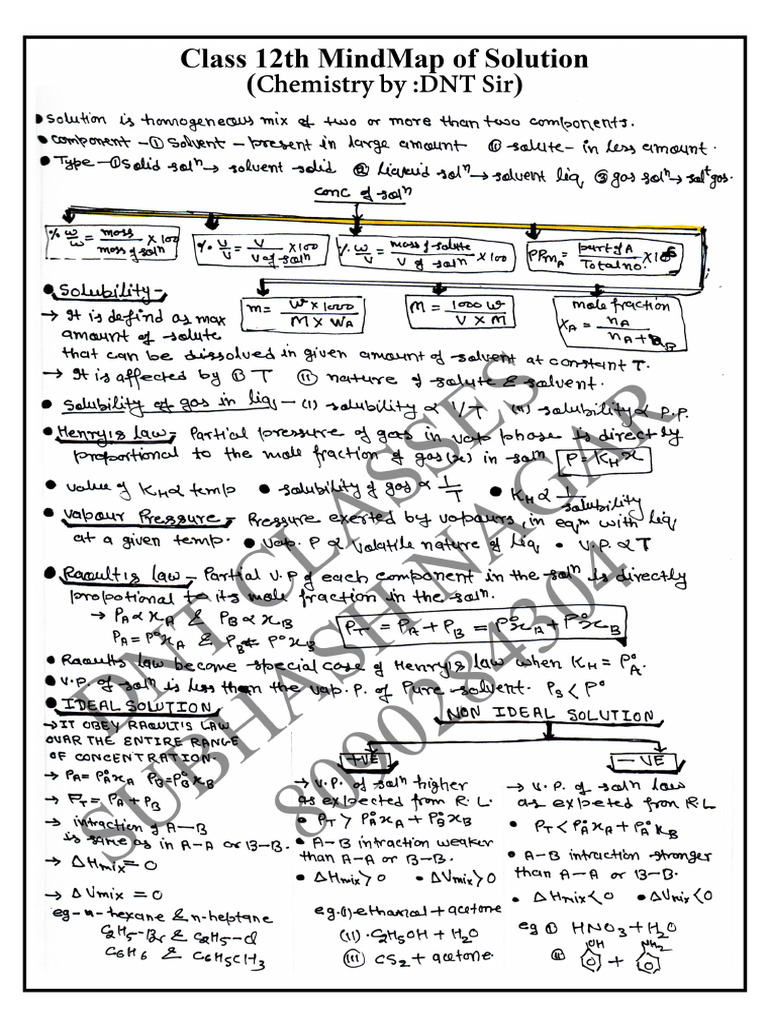 Class 12th MindMap of Solution
(Chemistry by :DNT Sir)
• Solution is homogeneous mix of two or more than two components.
• Component - ① Solvent - present in large amount ② solute - in less amount.
• Type - ① Solid solⁿ → solvent solid ② Liquid solⁿ → solvent liq ③ gas solⁿ → solᵗ gas.
conc of solⁿ
% w/w = mass / mass of solⁿ × 100
% v/v = V / V of solⁿ × 100
% w/v = mass of solute / V of solⁿ × 100
PPm_A = part of A / Total no. × 10⁶
• Solubility -
m = w × 1000 / M × W_A
M = 1000 w / V × M
mole fraction
x_A = n_A / n_A + n_B
→ It is defind as max
amount of solute
that can be dissolved in given amount of solvent at constant T.
→ It is affected by ① T ② nature of solute & solvent.
• Solubility of gas in liq - (i) solubility ∝ 1/T (ii) solubility ∝ P.P.
• Henry's law - Partial pressure of gas in vap phase is directly
proportional to the mole fraction of gas (x) in solⁿ P = K_H x
• value of K_H ∝ temp • solubility of gas ∝ 1/T • K_H ∝ 1/solubility
• Vapour Pressure - Pressure exerted by vapours, in eqm with liq
at a given temp. • vap. P ∝ volatile nature of liq • V.P. ∝ T
• Raoult's law - Partial V.P of each component in the solⁿ is directly
propotional to its mole fraction in the solⁿ.
→ P_A ∝ x_A & P_B ∝ x_B
P_T = P_A + P_B = P°x_A + P°x_B
P_A = P°x_A & P_B = P°x_B
• Raoults law become special case of Henry's law when K_H = P°_A.
• V.P. of solⁿ is less than the vap. P. of Pure solvent. P_S < P°
• IDEAL SOLUTION
→ IT OBEY RAOULT'S LAW
OVAR THE ENTIRE RANGE
OF CONCENTRATION.
→ P_A = P°_A x_A P_B = P°_B x_B
→ P_T = P_A + P_B
→ intraction of A—B
is same as in A-A or B-B.
→ ΔHmix = 0
→ ΔVmix = 0
eg - n-hexane & n-heptane
C₂H₅-Br & C₂H₅-Cl
C₆H₆ & C₆H₅CH₃
NON IDEAL SOLUTION
+VE
→ V.P. of solⁿ higher
as expected from R.L.
• P_T > P°_A x_A + P°_B x_B
• A-B intraction weaker
than A-A or B-B.
• ΔHmix > 0 • ΔVmix > 0
eg. (i) ethanol + acetone
(ii) C₂H₅OH + H₂O
(iii) CS₂ + acetone.
-VE
→ V.P. of solⁿ law
as expeted fron R.L
• P_T < P°_A x_A + P°_B x_B
• A-B intraction stronger
than A-A or B-B.
• ΔHmix < 0 • ΔVmix < 0
eg ① HNO₃ + H₂O
② OH + NH₂
DNT CLASSES
SUBHASH NAGAR
8090284304